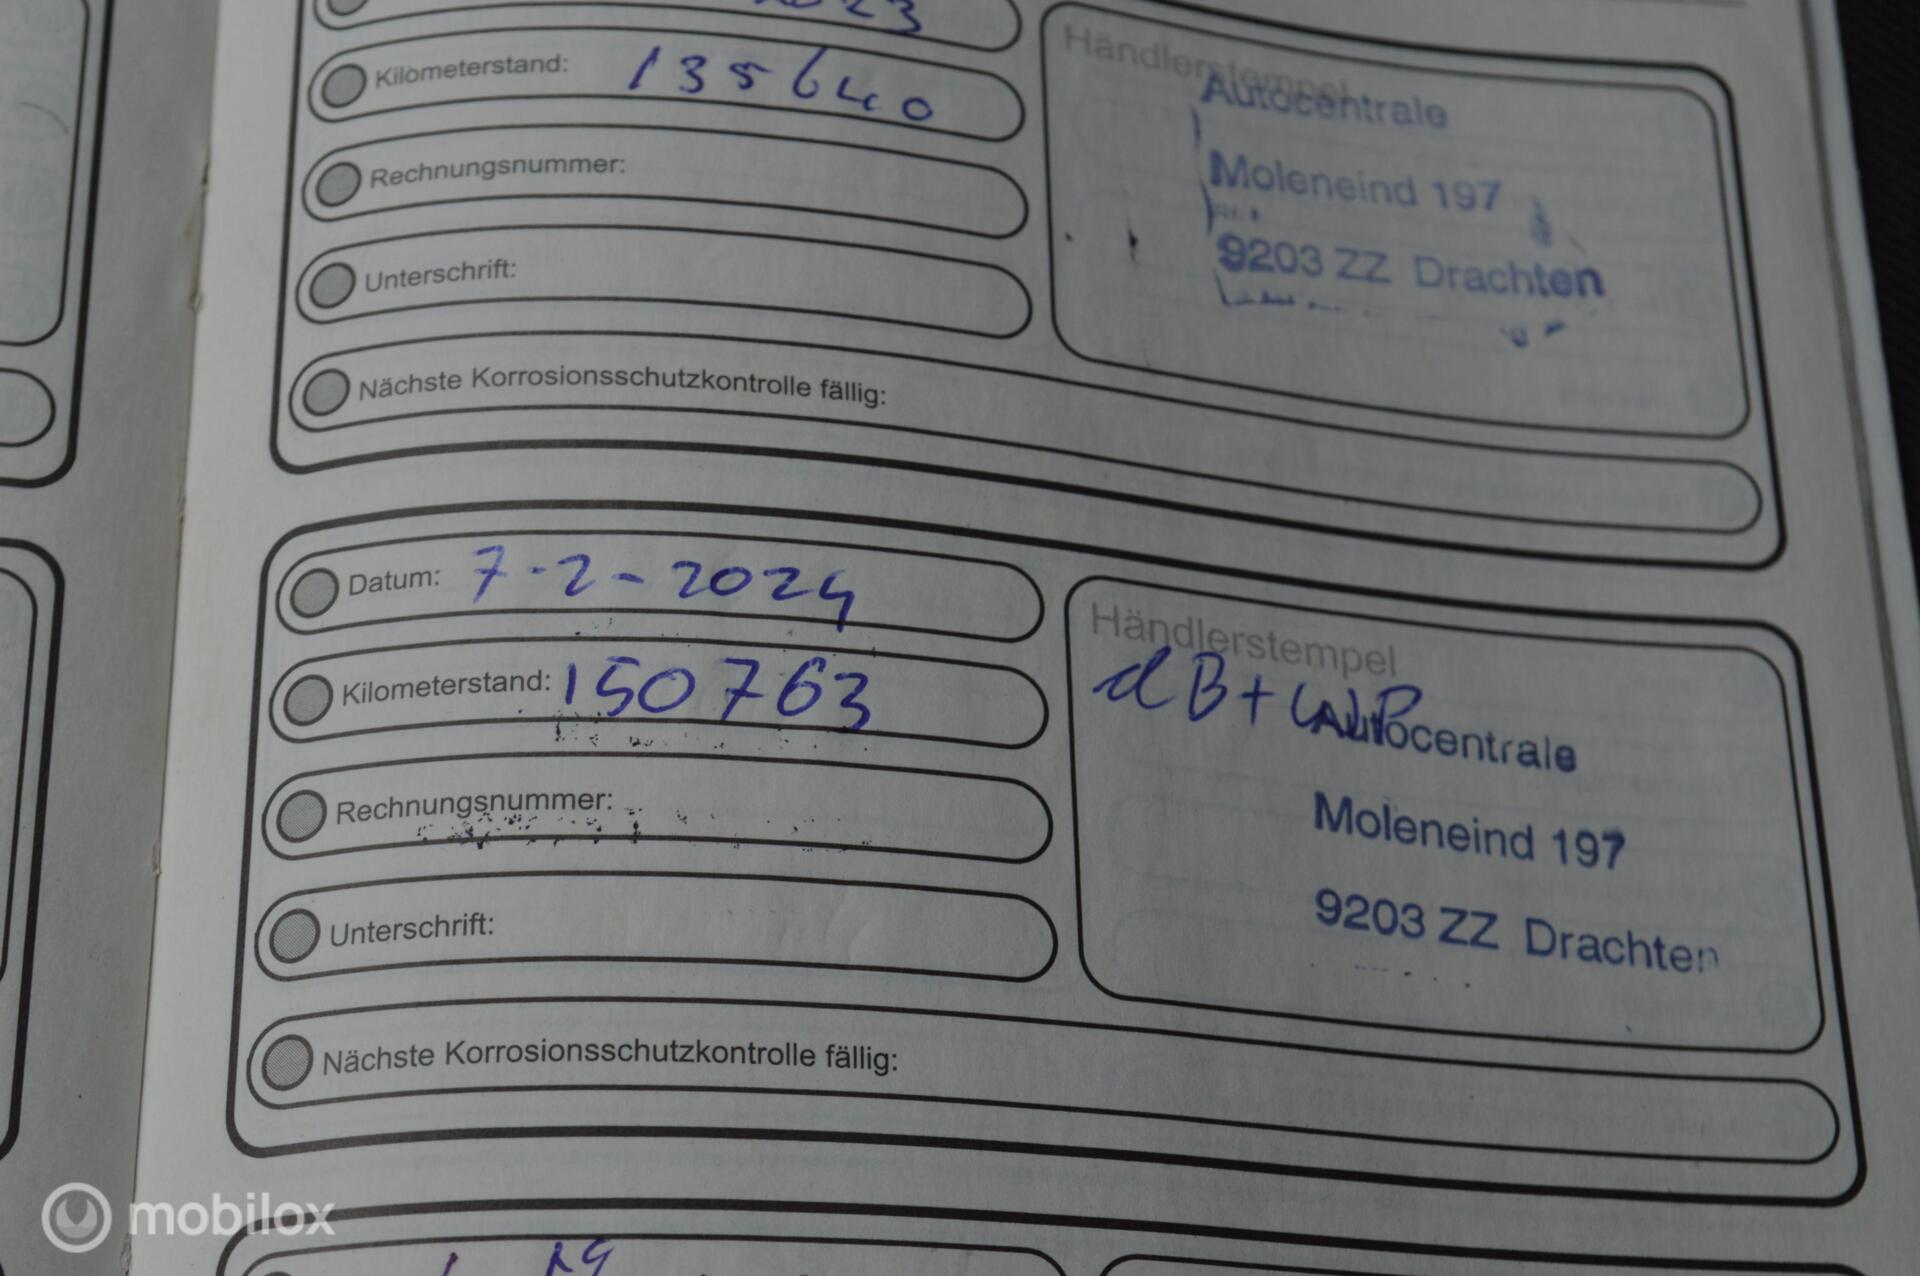 2023
Kilometerstand: 135640
Rechnungsnummer:
Unterschrift:
Nächste Korrosionsschutzkontrolle fällig:
Händlerstempel
Autocentrale
Moleneind 197
9203 ZZ Drachten
Datum: 7-2-2024
Kilometerstand: 150763
Rechnungsnummer:
Unterschrift:
Nächste Korrosionsschutzkontrolle fällig:
Händlerstempel
dB+WP
Autocentrale
Moleneind 197
9203 ZZ Drachten
mobilox